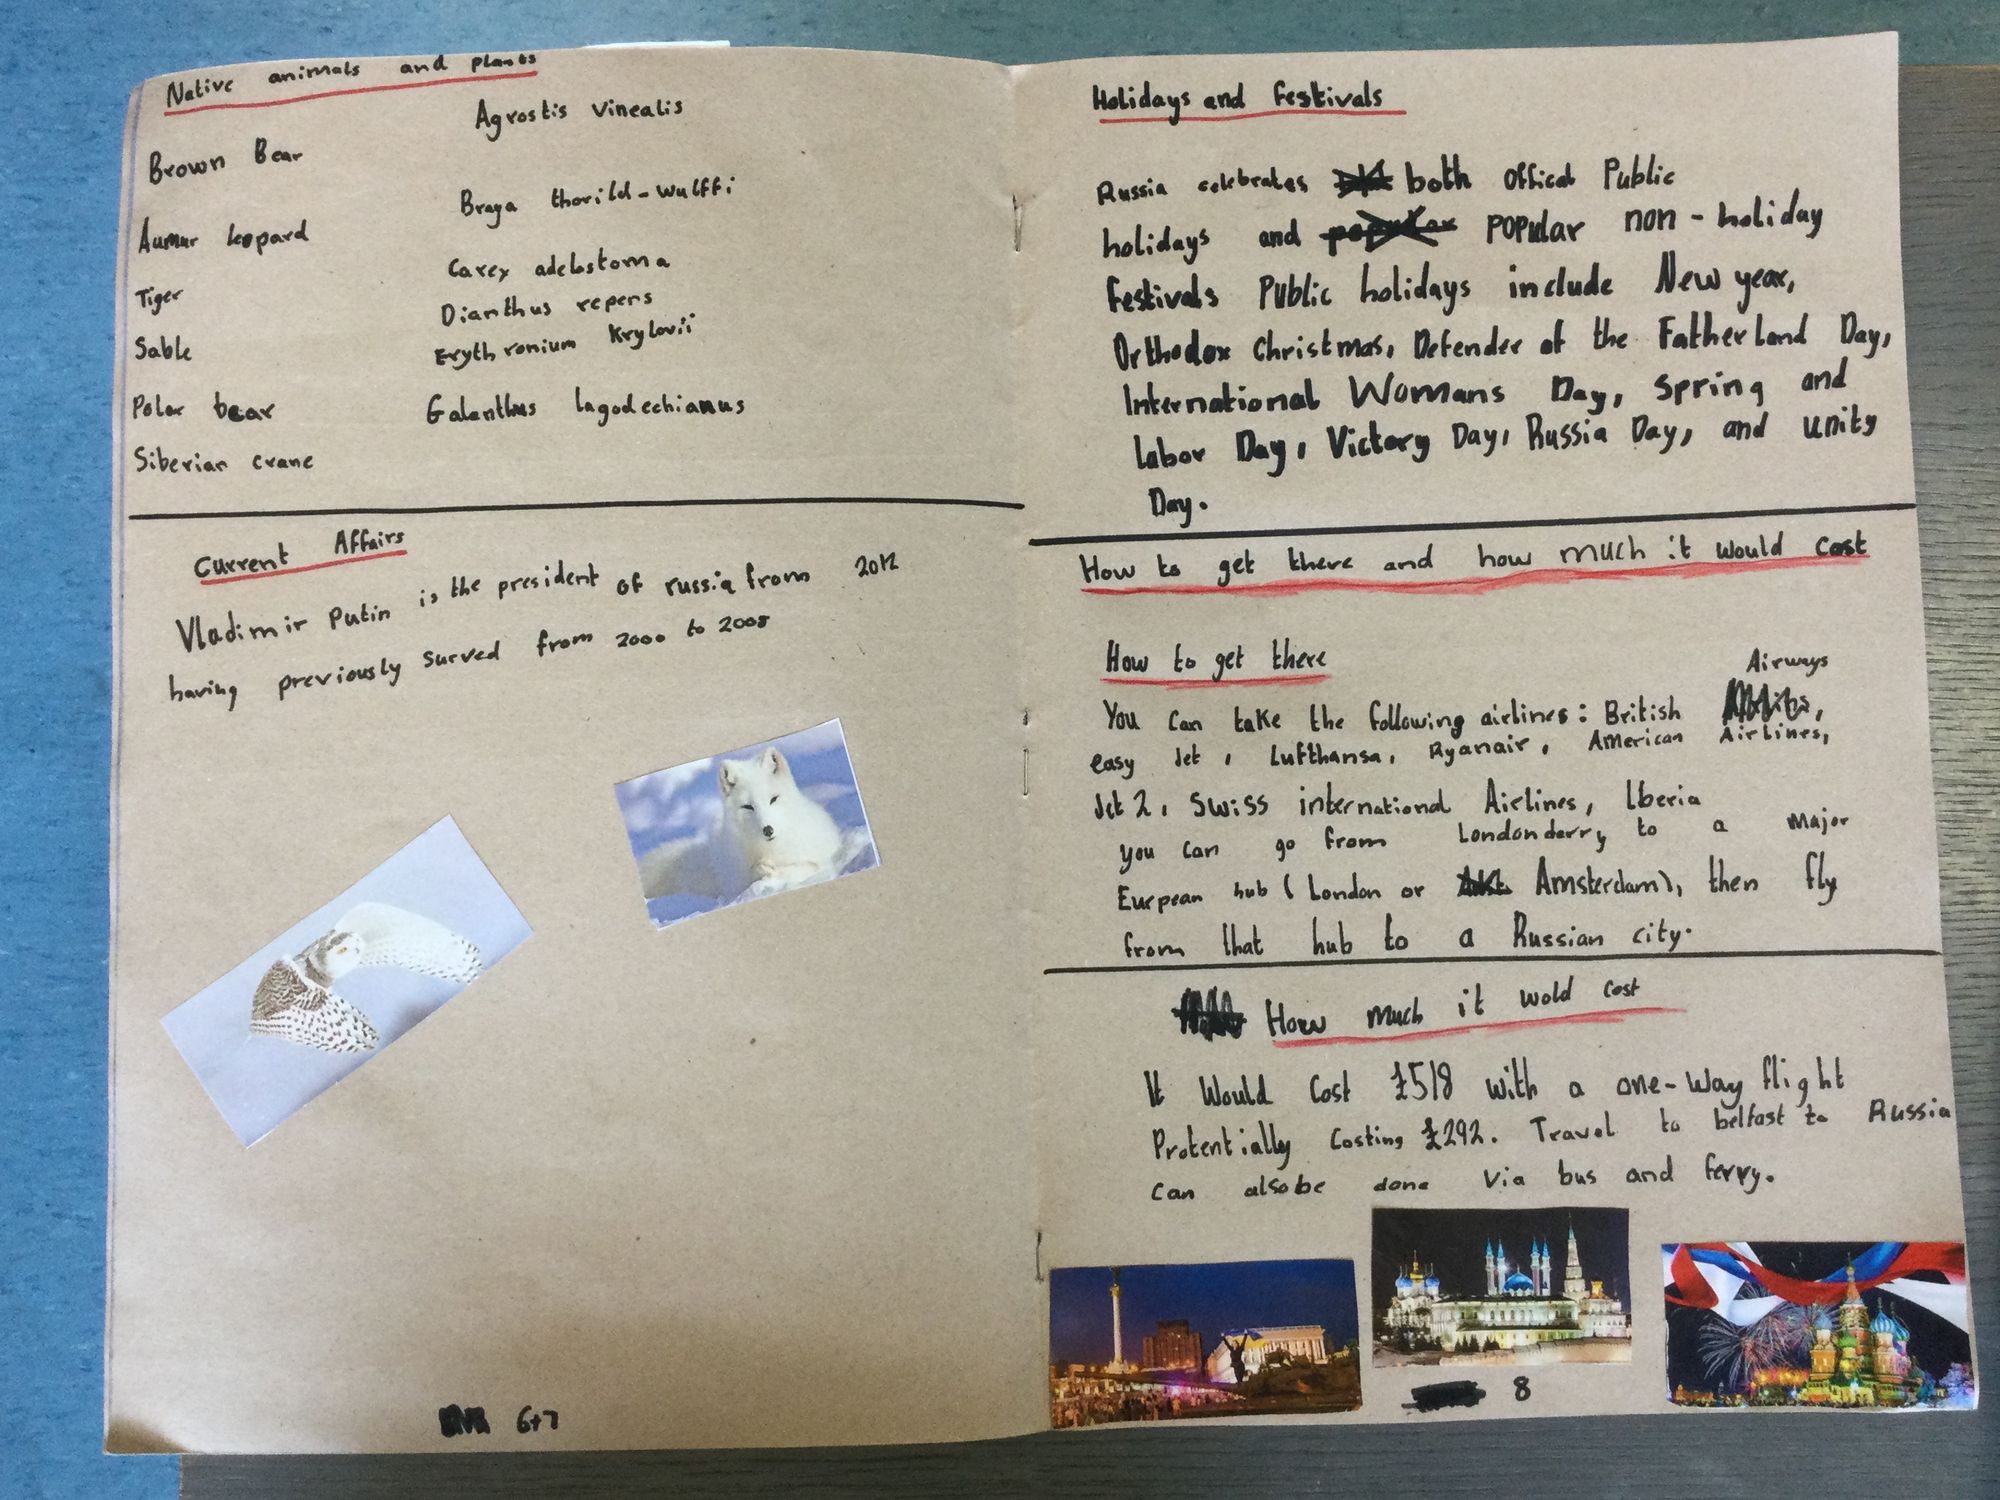 Native animals and plants
Brown Bear
Aumur leopard
Tiger
Sable
Polar bear
Siberian crane
Agrostis vinealis
Braya thorild-wulffi
Carex adelostoma
Dianthus repens
Erythronium Krylovii
Galanthus lagodechianus
Current Affairs
Vladimir Putin is the president of russia from 2012
having previously surved from 2000 to 2008
6+7
Holidays and festivals
Russia celebrates both offical Public
holidays and popular non-holiday
festivals Public holidays include New year,
Orthodox Christmas, Defender of the Fatherland Day,
International Womans Day, Spring and
labor Day, Victory Day, Russia Day, and unity
Day.
How to get there and how much it would cost
How to get there
You can take the following airlines: British Airways,
easy Jet, Lufthansa, Ryanair, American Airlines,
Jet2, Swiss international Airlines, Iberia
you can go from Londonderry to a major
Eurpean hub (London or Amsterdam), then fly
from that hub to a Russian city.
How much it wold cost
It would cost £518 with a one-way flight
Protentially costing £292. Travel to belfast to Russia
can also be done via bus and ferry.
8